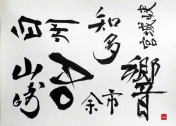 宮城峡
響
知多
余市
白州
AO
山崎